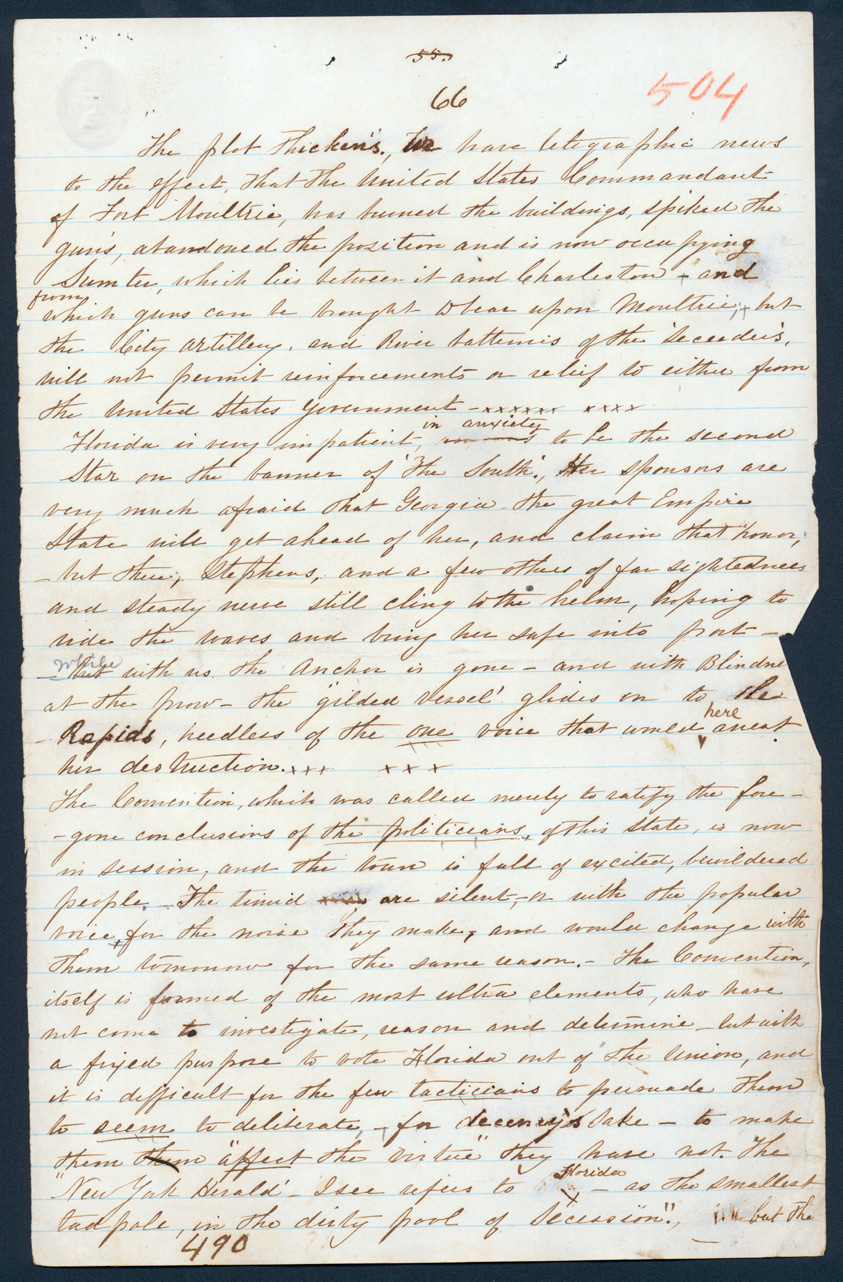 55.
66
504
"The plot thicken's., We have telegraphic news
to the effect, that the United States Commandant
of Fort Moultrie, has burned the buildings, spiked the
guns, abandoned the position and is now occupying
Sumter, which lies between it and Charleston - and
from
which guns can be brought to bear upon Moultrie, + but
the City artillery, and River batteries of the 'Seceeder's,
will not permit reinforcements or relief to either from
the United States Government - xxxxxx xxxx
in anxiety
Florida is very impatient, to be the second
Star on the banner of 'The South'., Her sponsors are
very much afraid that Georgia - the great Empire
State will get ahead of her, and claim that honor,
- but there, Stephens, and a few others of far sightedness
and steady nerve still cling to the helm, hoping to
ride the waves and bring her safe into port -
while
- but with us the Anchor is gone - and with Blindne
at the prow - the 'gilded vessel' glides on to the
here
- Rapids, heedless of the one voice that would arrest
her destruction. xxx xxx
The Convention, which was called merely to ratify the fore-
-gone conclusions of the politicians, of this State, is now
in session, and the town is full of excited, bewildered
people - The timid are silent, - or with the popular
voice, + for the noise they make, and would change with
them tomorrow for the same reason. - The Convention,
itself is formed of the most ultra elements, who have
not come to investigate, reason and determine - but with
a fixed purpose to vote Florida out of the Union, and
it is difficult for the few tacticians to persuade them
to seem to deliberate, - for decency's sake - to make
them them "affect the virtue" they have not. The
Florida
"New York Herald' - I see refers to x - as the smallest
tadpole, in the dirty pool of Secession"., but the
490